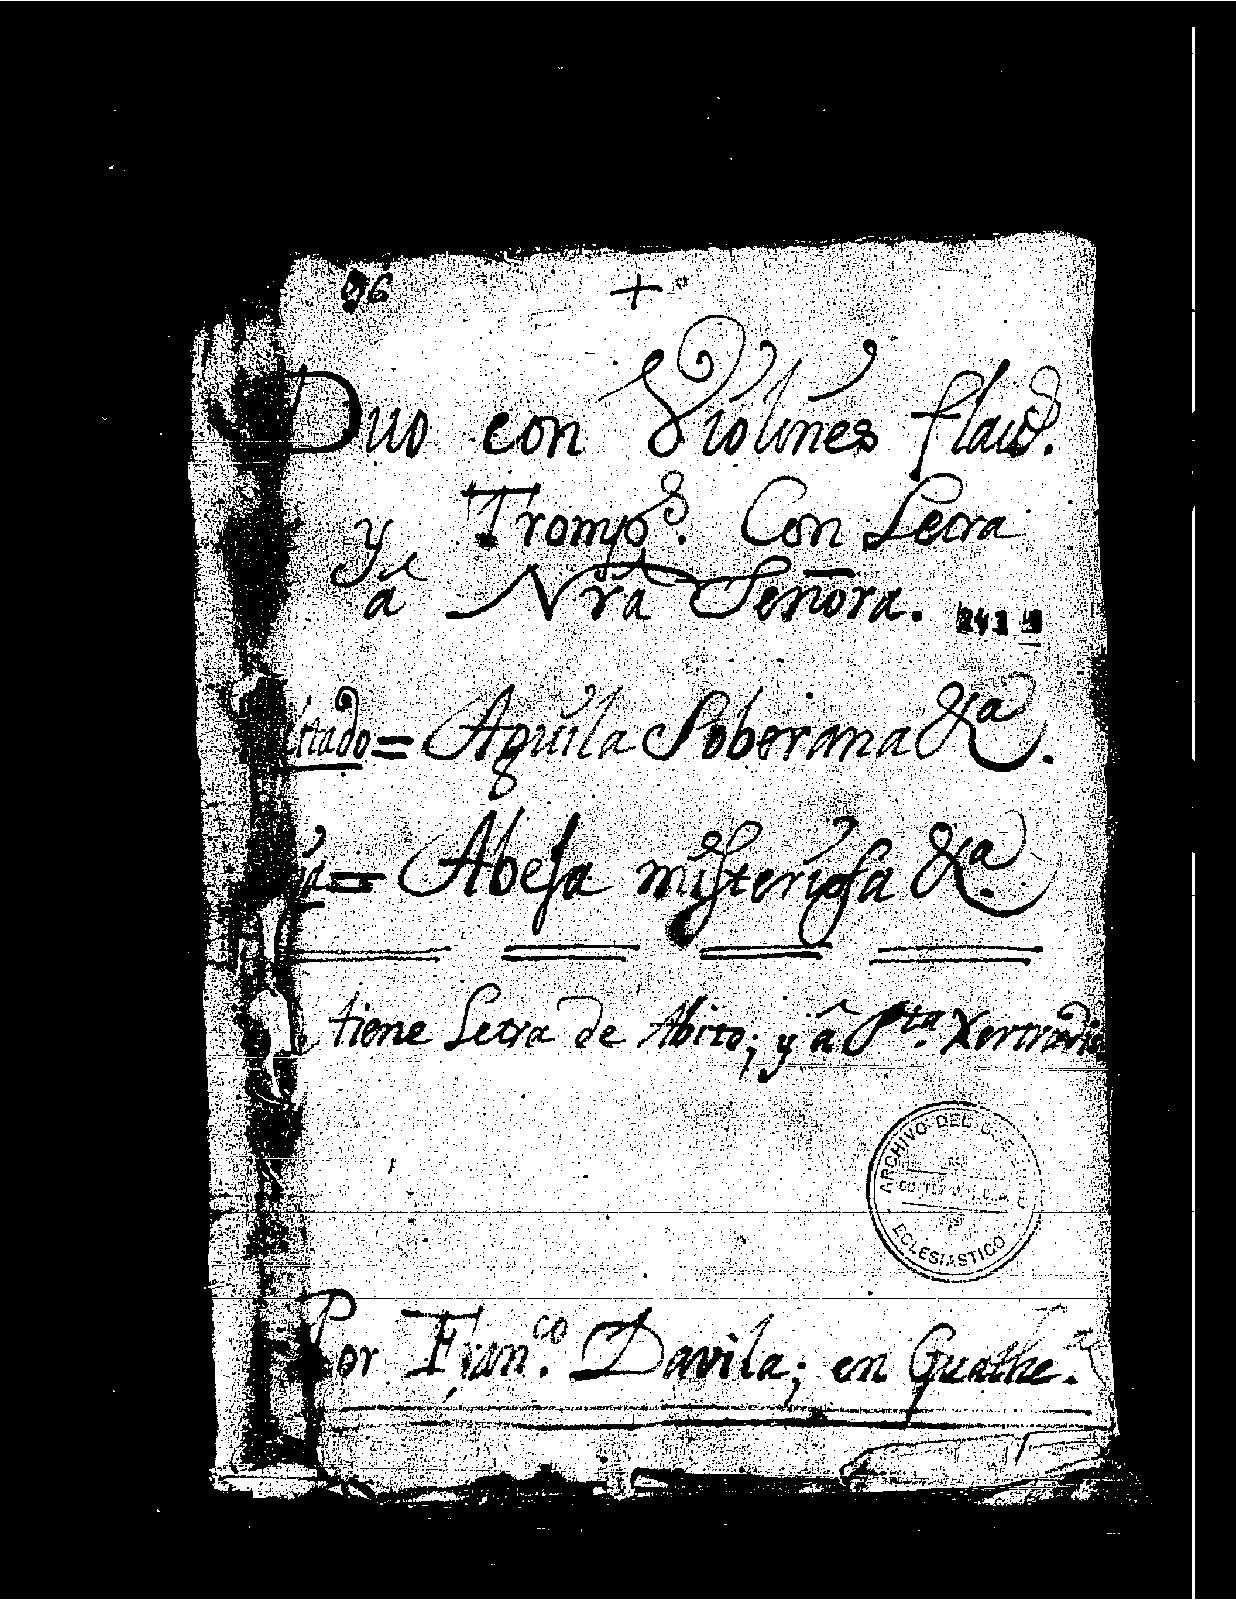 96
+
Duo con Violines flaus.
y Tromps. Con Letra
a Nra Señora.
ertado = Aguila Soberana &a.
ja = Abeja misteriosa &a.
tiene Letra de Abito; y â Sta. Xertrudis
ARCHIVO DEL
ECLESIASTICO
Por Franco. Davila; en Guathe.